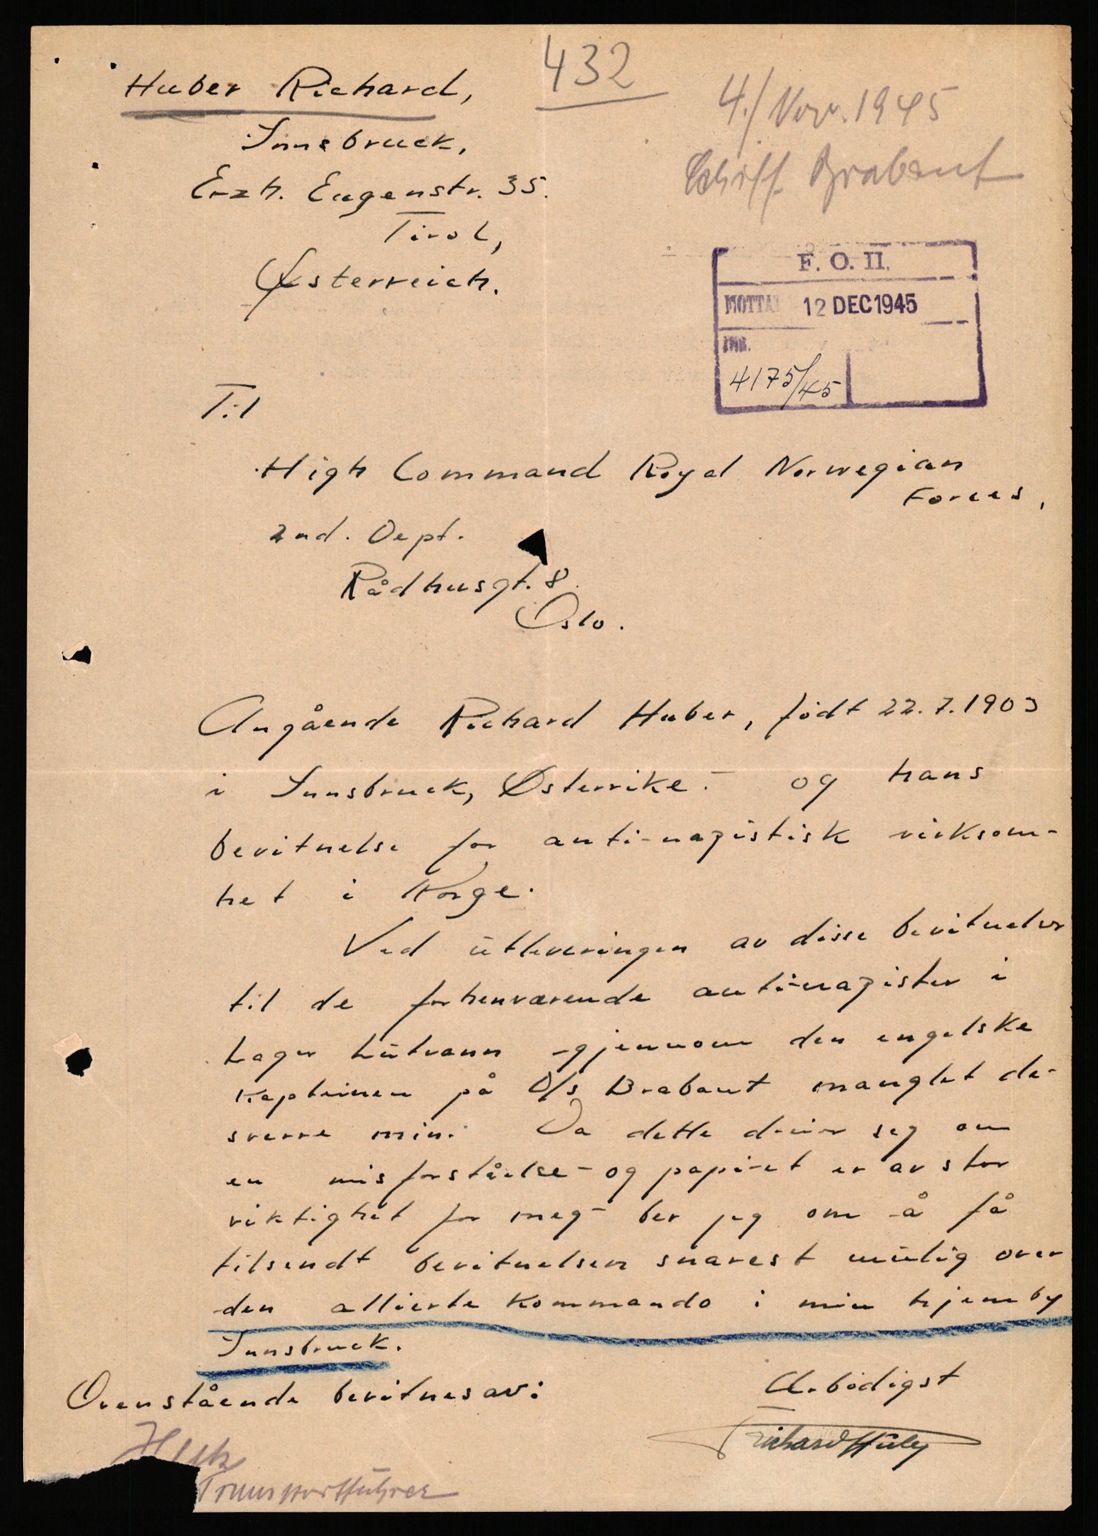 432
Huber Richard,
4./Nov. 1945
Schiff. Brabant
Innsbruck,
Erzh. Eugenstr. 35.
Tirol,
Österreich.
F. O. II.
MOTTA 12 DEC 1945
JNR.
4175/45
Til
High Command Royal Norwegian
Forces,
2nd. Dept.
Rådhusgt. 8.
Oslo.
Angående Richard Huber, født 22.7.1903
i Innsbruck, Østerrike. - og hans
bevitnelse for anti-nazistisk virksom-
het i Norge.
Ved utleveringen av disse bevitnelser
til de forhenværende anti-nazister i
Lager Lutvann - gjennom den engelske
kapteinen på D/s Brabant manglet de-
sverre min. Da dette dreier seg om
en misforståelse - og papiret er av stor
viktighet for meg - ber jeg om å få
tilsendt bevitnelsen snarest mulig over
den allierte kommando i min hjemby
Innsbruck.
Ovenstående bevitnes av:
Ærbødigst
Richard Huber
Transportführer